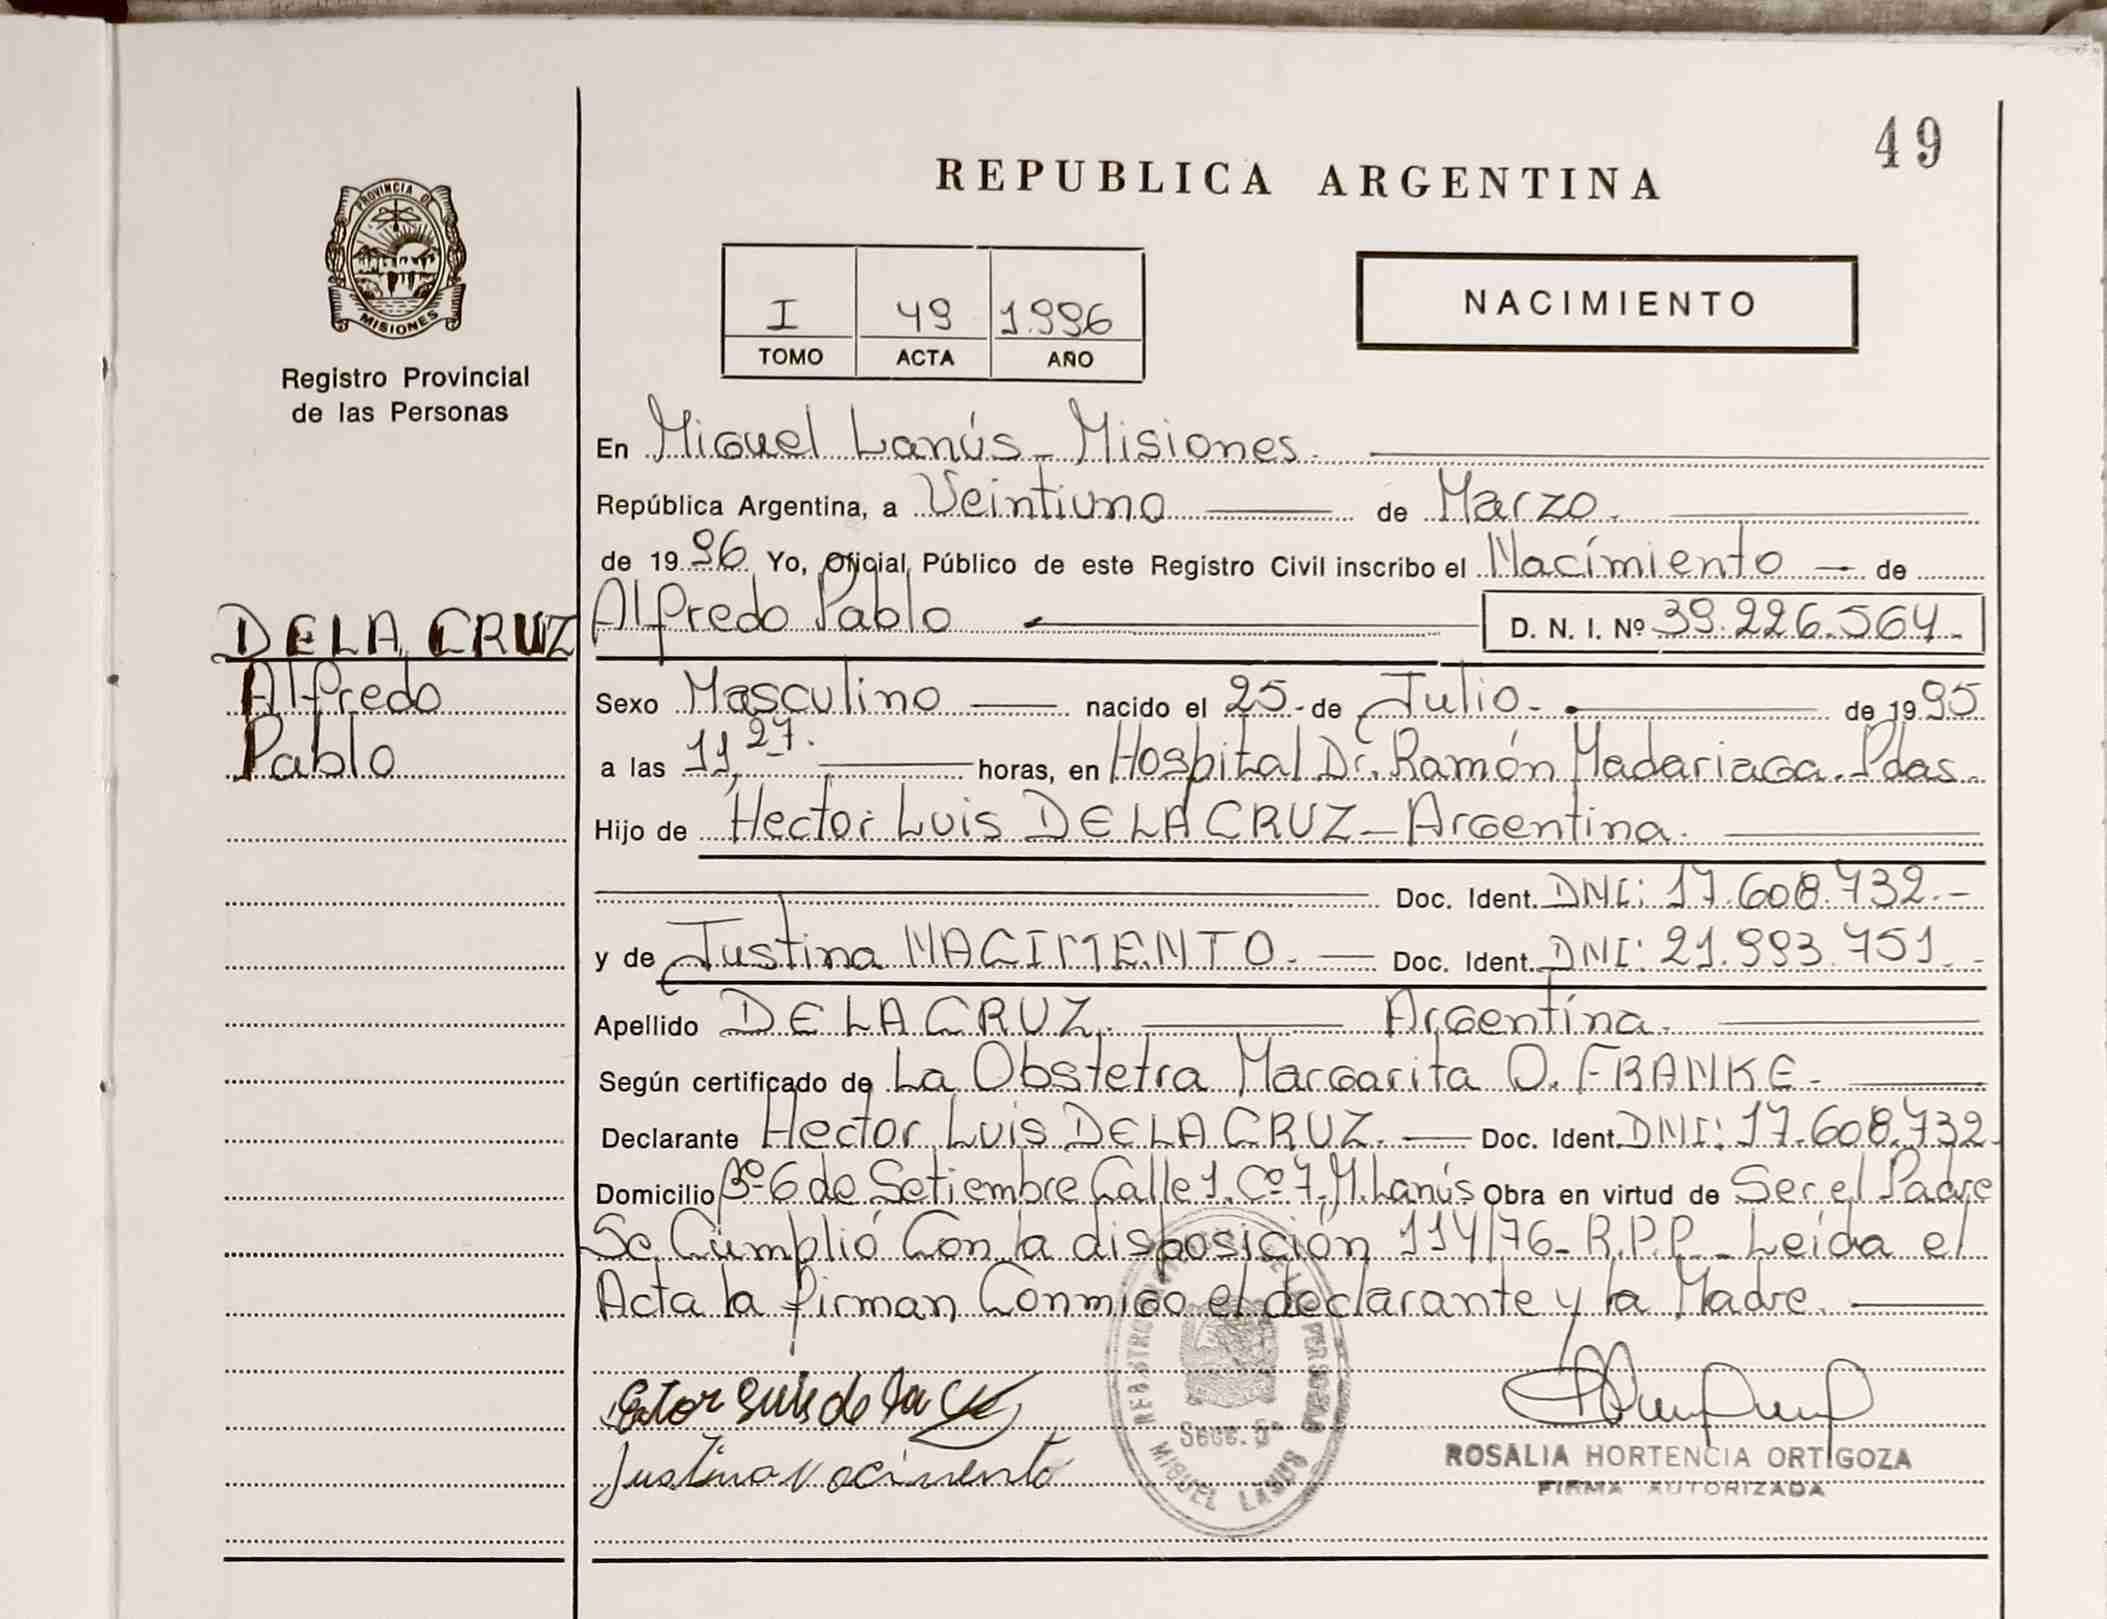 49
REPUBLICA ARGENTINA
PROVINCIA DE
MISIONES
Registro Provincial
de las Personas
I 49 1.996
TOMO ACTA AÑO
NACIMIENTO
En Miguel Lanús - Misiones.
República Argentina, a Veintiuno de Marzo.
de 1996 Yo, Oficial Público de este Registro Civil inscribo el Nacimiento de
Alfredo Pablo D. N. I. Nº 39.226.564.-
DE LA CRUZ
Alfredo
Pablo
Sexo Masculino nacido el 25 - de Julio - de 1995
a las 11,27. horas, en Hospital Dr. Ramón Madariaga. Pdas.
Hijo de Hector Luis DE LA CRUZ - Argentina.
Doc. Ident. DNI: 17.608.732.-
y de Justina NACIMENTO. Doc. Ident. DNI: 21.993.751.-
Apellido DE LA CRUZ. Argentina.
Según certificado de La Obstetra Margarita O. FRANKE.
Declarante Hector Luis DE LA CRUZ. Doc. Ident. DNI: 17.608.732.
Domicilio Bº 6 de Setiembre Calle 1. Cº 7. M. Lanús Obra en virtud de Ser el Padre
Se Cumplió Con la disposición 114/76 - R.P.P. - Leída el
Acta la firman Conmigo el declarante y la Madre.
Ector Luis de la Cruz
Justina Nacimento
Secc. 5ª
MIGUEL LANUS
ROSALIA HORTENCIA ORTIGOZA
FIRMA AUTORIZADA